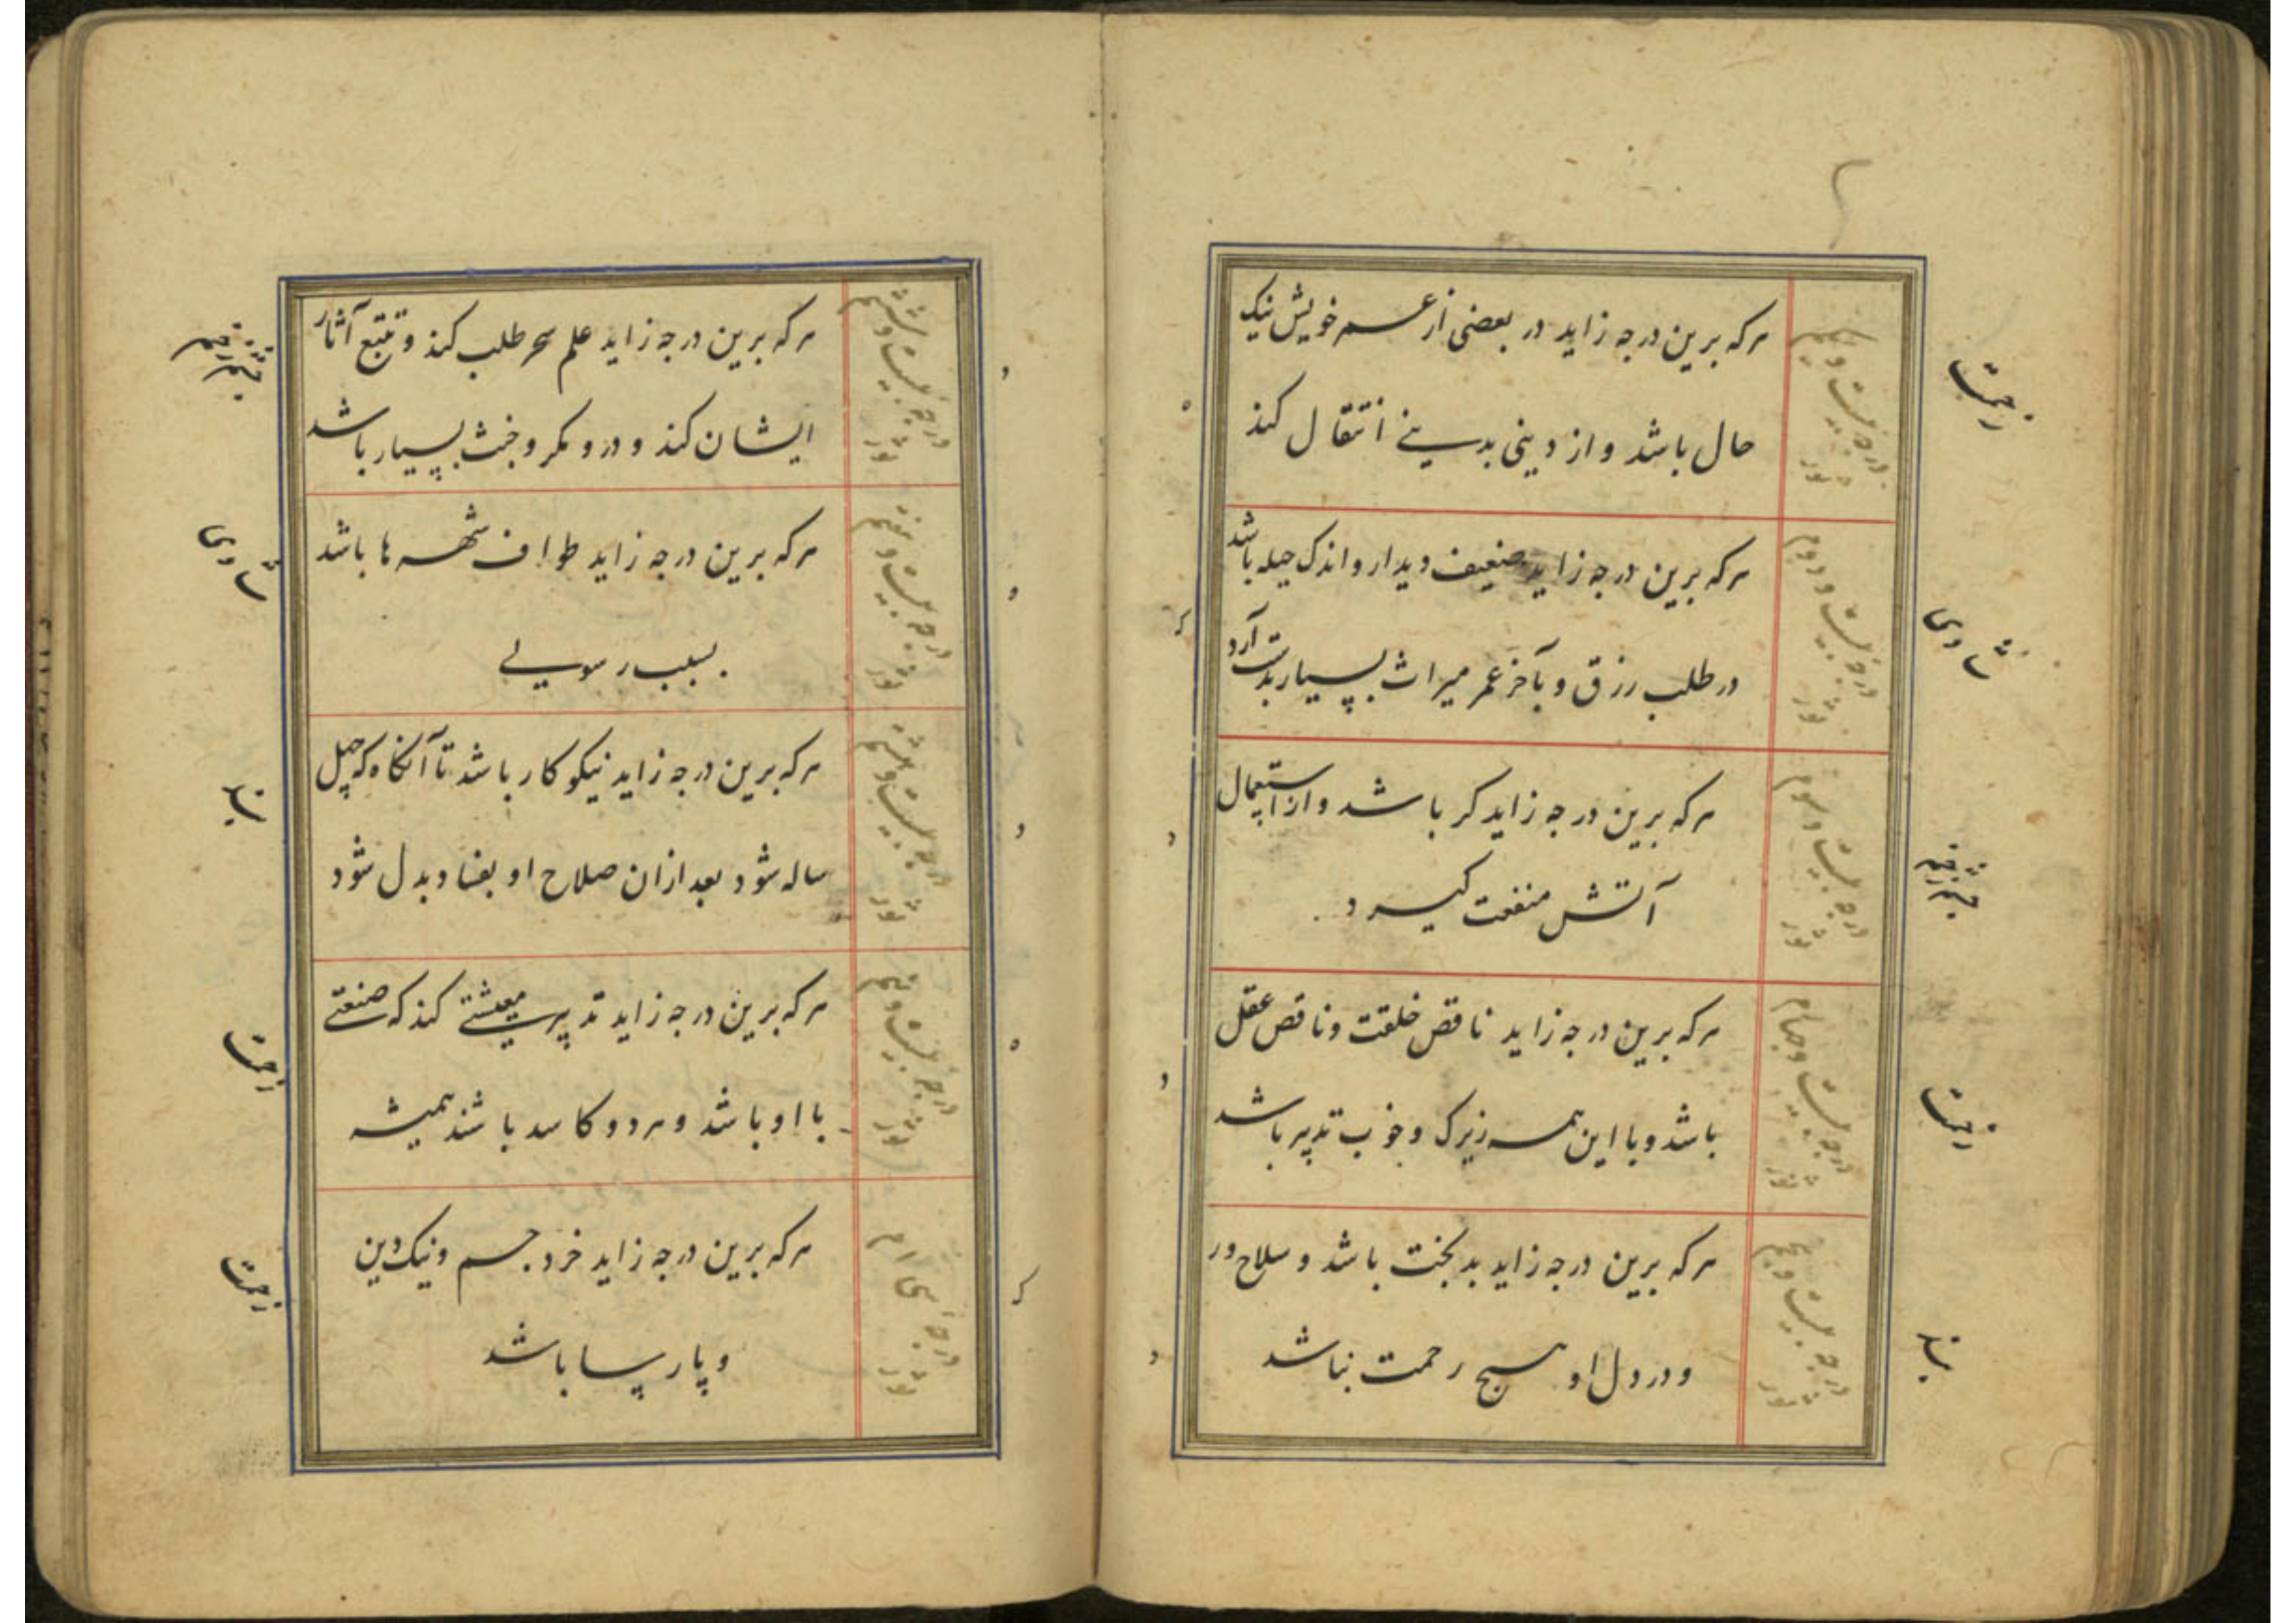 هرکه برین درجه زاید در بعضی از عمر خویش نیک
حال باشد و از دینی بدینی انتقال کند
درجه بیست و یکم
ثور
هرکه برین درجه زاید ضعیف دیدار و اندک حیله باشد
در طلب رزق و بآخر عمر میراث بسیار بدست آرد
درجه بیست و دوم
ثور
هرکه برین درجه زاید کر باشد و از استعمال
آتش منفعت گیرد
درجه بیست و سوم
ثور
هرکه برین درجه زاید ناقص خلقت و ناقص عقل
باشد و با این همه زیرک و خوب تدبیر باشد
درجه بیست و چهارم
ثور
هرکه برین درجه زاید بدبخت باشد و سلاح ور
و در دل او هیچ رحمت نباشد
درجه بیست و پنجم
ثور
هرکه برین درجه زاید علم سحر طلب کند و تتبع آثار
ایشان کند و درو مکر و خبث بسیار باشد
درجه بیست و ششم
ثور
هرکه برین درجه زاید طواف شهرها باشد
بسبب رسولی
درجه بیست و هفتم
ثور
هرکه برین درجه زاید نیکوکار باشد تا آنگاه که چهل
ساله شود بعد ازان صلاح او بفساد بدل شود
درجه بیست و هشتم
ثور
هرکه برین درجه زاید تدبیر معیشتی کند که صنعتی
با او باشد و هر دو کاسد باشند همیشه
درجه بیست و نهم
ثور
هرکه برین درجه زاید خرد جسم و نیک دین
و پارسا باشد
درجه سی ام
ثور